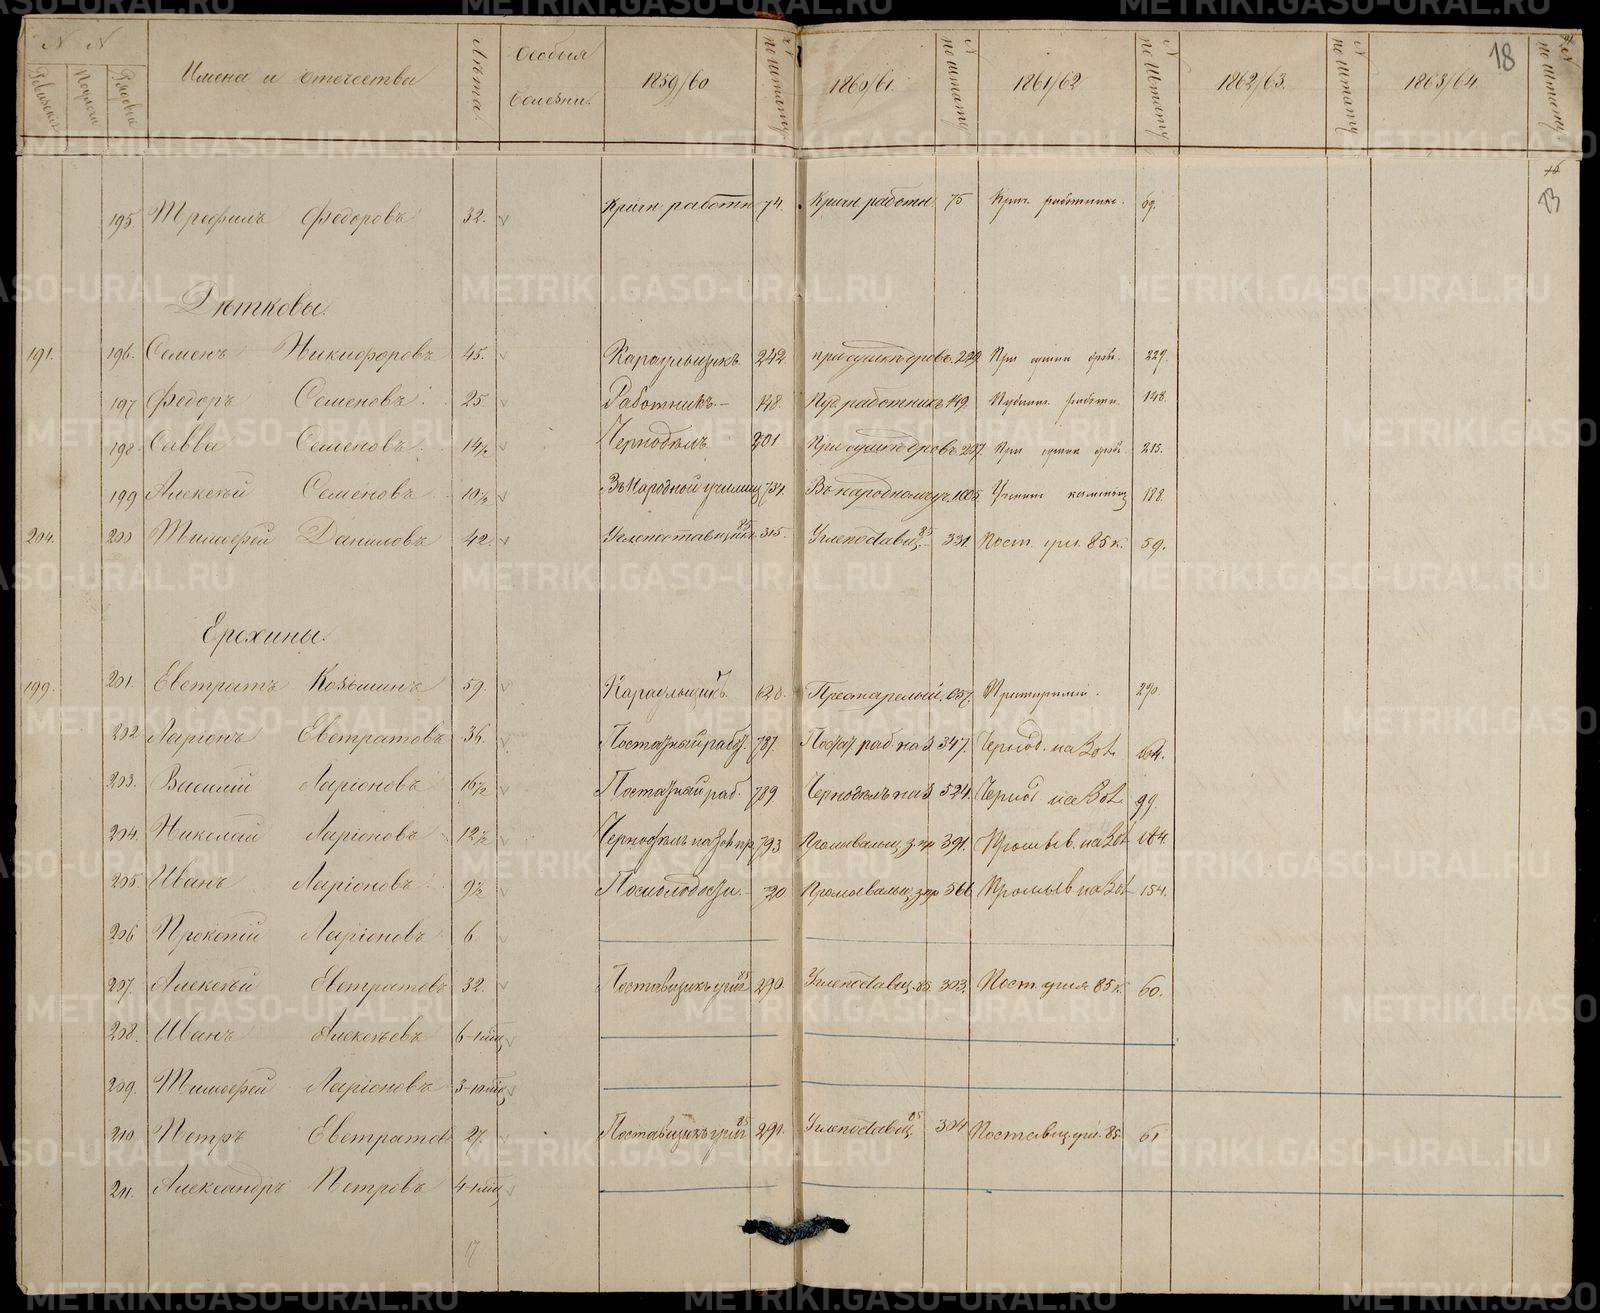 18
№ №
Ревизскія
Рядовые
Имена и отечества
Лѣта.
Особыя болѣзни.
1859/60
№ по штату
1860/61.
№ по штату
1861/62
№ по штату
1862/63.
№ по штату
1863/64.
№ по штату
13
195. Трофимъ Федоровъ 32. Кричн работн 74. Кричн работн 75 Крич. работникъ. 69.
Дѣтковы.
191. 196. Семенъ Никифоровъ 45. Караульщикъ 242. при сушкѣ дровъ. 229. При сушки дровъ. 229.
197 Федоръ Семеновъ 25 Работникъ.- 148. Пуд. работникъ 149. работн. 148.
198 Савва Семеновъ 14½ Чернодѣлъ 201 При сушкѣ дровъ. 217. При сушки дровъ 215.
199 Алексѣй Семеновъ 10½ Въ Народной училищ 734. Въ народномъ уч. 1005 188.
204. 200 Тимофей Даниловъ 42. Углепоставщикъ 85 315. Углепоставщ. 85 331. Пост. угл. 85 к. 59.
Ерохины.
199. 201. Евстратъ Козьминъ 59. Караульщикъ 620. Престарелый. 657. Престарелый. 290.
202 Ларіонъ Евстратовъ 36. Постатный рабоч. 787. Постат. раб на З 347. Чернод. на Зол. 604.
203. Василій Ларіоновъ 16½ Постатный раб. 789 Чернодѣлъ на З 524. Чернод на Зол 99.
204. Николай Ларіоновъ 12½ Чернодѣлъ на Зол пр 793 Промывальщ. з. пр 391. Промыв. на Зол 164.
205. Иванъ Ларіоновъ 9½ Промывальщ. з. пр 566 Промыв на Зол 154.
206 Прокопій Ларіоновъ 6.
207. Алексѣй Евстратовъ 32. Поставщикъ угля 85 290. Углепоставщ. 85 303. Пост угля 85 к. 60.
208. Иванъ Алексѣевъ
209. Тимофей Ларіоновъ
210. Петръ Евстратов 27. Поставщикъ угля 85 291. Углепоставщ. 85 304 Поставщ. угл. 85. 61
211. Александръ Петровъ
17
METRIKI.GASO-URAL.RU